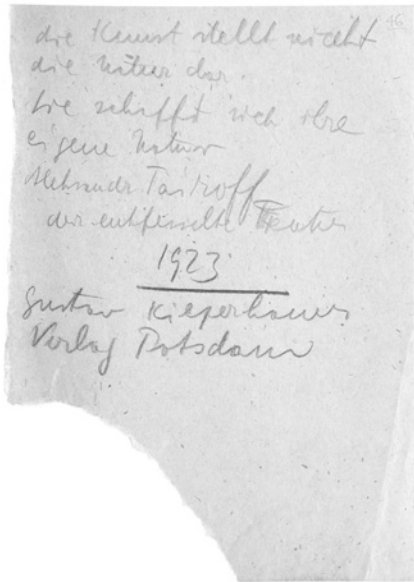 46
die Kunst stellt nicht
die Natur dar.
Sie schafft sich ihre
eigene Natur
Aleksandr Tairoff
der entfesselte Theater
1923
Gustav Kiepenheuer
Verlag Potsdam